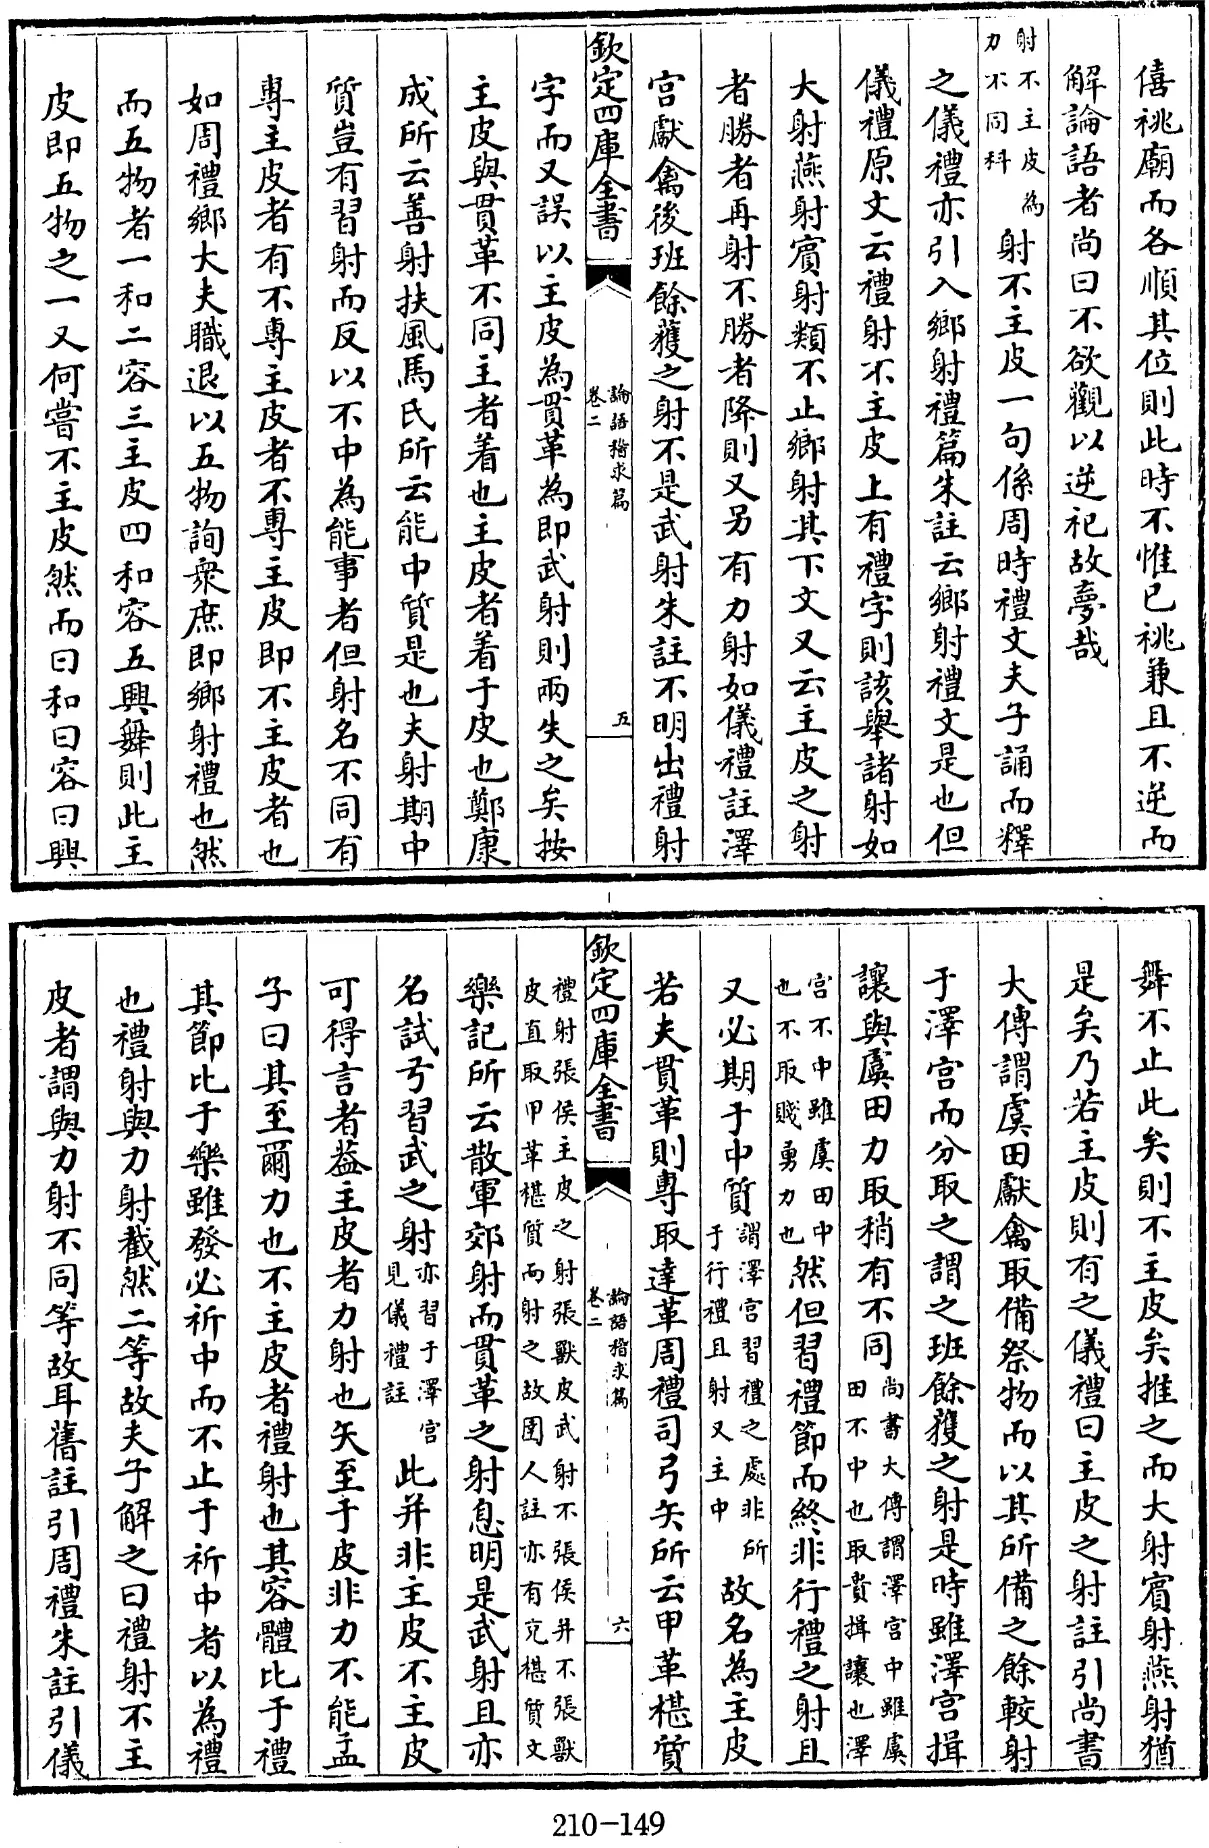 僖祧廟而各順其位則此時不惟已祧兼且不逆而
解論語者尚曰不欲觀以逆祀故夢哉
射不主皮為
力不同科
射不主皮一句係周時禮文夫子誦而釋
之儀禮亦引入鄉射禮篇朱註云鄉射禮文是也但
儀禮原文云禮射不主皮上有禮字則該舉諸射如
大射燕射賓射類不止鄉射其下文又云主皮之射
者勝者再射不勝者降則又另有力射如儀禮註澤
宮獻禽後班餘蒦之射不是武射朱註不明出禮射
欽定四庫全書
論語稽求篇
卷二
五
字而又誤以主皮為貫革為即武射則兩失之矣按
主皮與貫革不同主者着也主皮者着于皮也鄭康
成所云善射扶風馬氏所云能中質是也夫射期中
質豈有習射而反以不中為能事者但射名不同有
專主皮者有不專主皮者不專主皮即不主皮者也
如周禮鄉大夫職退以五物詢衆庶即鄉射禮也然
而五物者一和二容三主皮四和容五興舞則此主
皮即五物之一又何嘗不主皮然而曰和曰容曰興
舞不止此矣則不主皮矣推之而大射賓射燕射猶
是矣乃若主皮則有之儀禮曰主皮之射註引尚書
大傳謂虞田獻禽取備祭物而以其所備之餘較射
于澤宮而分取之謂之班餘蒦之射是時雖澤宮揖
讓與虞田力取稍有不同
尚書大傳謂澤宮中雖虞
田不中也取貴揖讓也澤
宮不中雖虞田中
也不取賤勇力也
然但習禮節而終非行禮之射且
又必期于中質
謂澤宮習禮之處非所
于行禮且射又主中
故名為主皮
若夫貫革則專取達革周禮司弓矢所云甲革椹質
欽定四庫全書
論語稽求篇
卷二
六
禮射張侯主皮之射張獸皮武射不張侯并不張獸
皮直取甲革椹質而射之故圉人註亦有充椹質文
樂記所云散軍郊射而貫革之射息明是武射且亦
名試弓習武之射
亦習于澤宮
見儀禮註
此并非主皮不主皮
可得言者葢主皮者力射也矢至于皮非力不能孟
子曰其至爾力也不主皮者禮射也其容體比于禮
其節比于樂雖發必祈中而不止于祈中者以為禮
也禮射與力射截然二等故夫子解之曰禮射不主
皮者謂與力射不同等故耳舊註引周禮朱註引儀
210-149